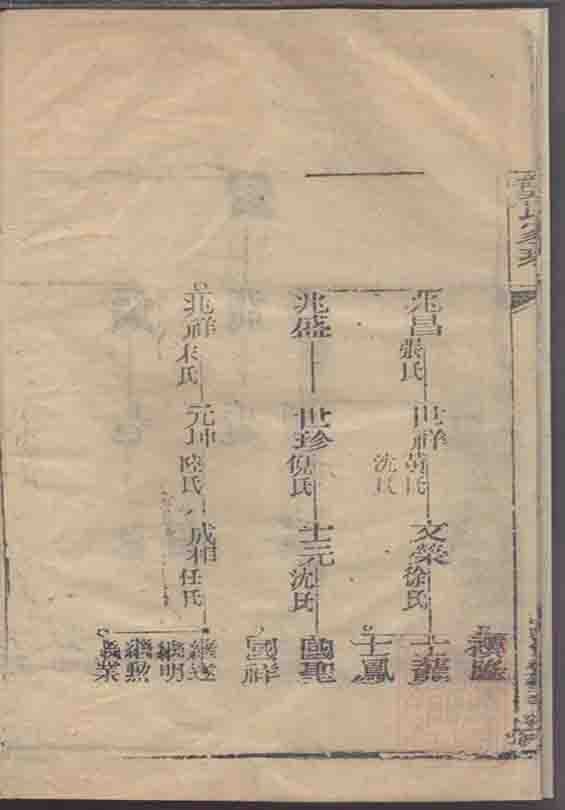 兆昌 張氏
世祥 黃氏 沈氏
文榮 徐氏
士龍
士鳳
兆盛
世珍 倪氏
士元 沈氏
國聖
國祥
兆祥 朱氏
元坤 陸氏
成相 任氏
繼達
繼明
繼勲
繼業